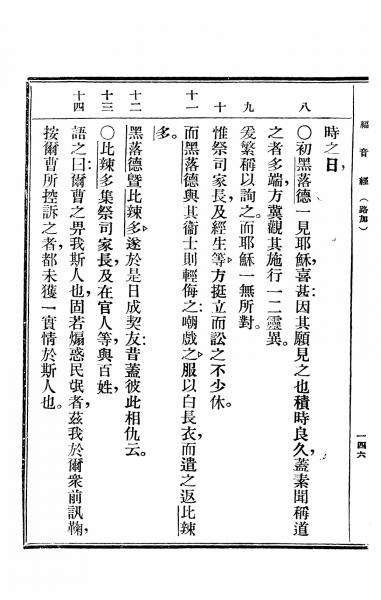 福音經（路加）
一四六
時之日，
八 〇初黑落德一見耶穌，喜甚；因其願見之也積時良久，蓋素聞稱道
之者多端，方冀觀其施行一二靈異。
九 爰繁稱以詢之。而耶穌一無所對。
十 惟祭司家長，及經生等，方挺立而訟之不少休。
十一 而黑落德與其衞士則輕侮之；嘲戲之，服以白長衣，而遣之返比辣
多。
十二 黑落德曁比辣多，遂於是日成契友；昔蓋彼此相仇云。
十三 〇比辣多集祭司家長，及在官人等與百姓，
十四 語之曰：爾曹之畀我斯人也，固若煽惑民氓者，茲我於爾衆前訊鞫，
按爾曹所控訴之者，都未獲一實情於斯人也。